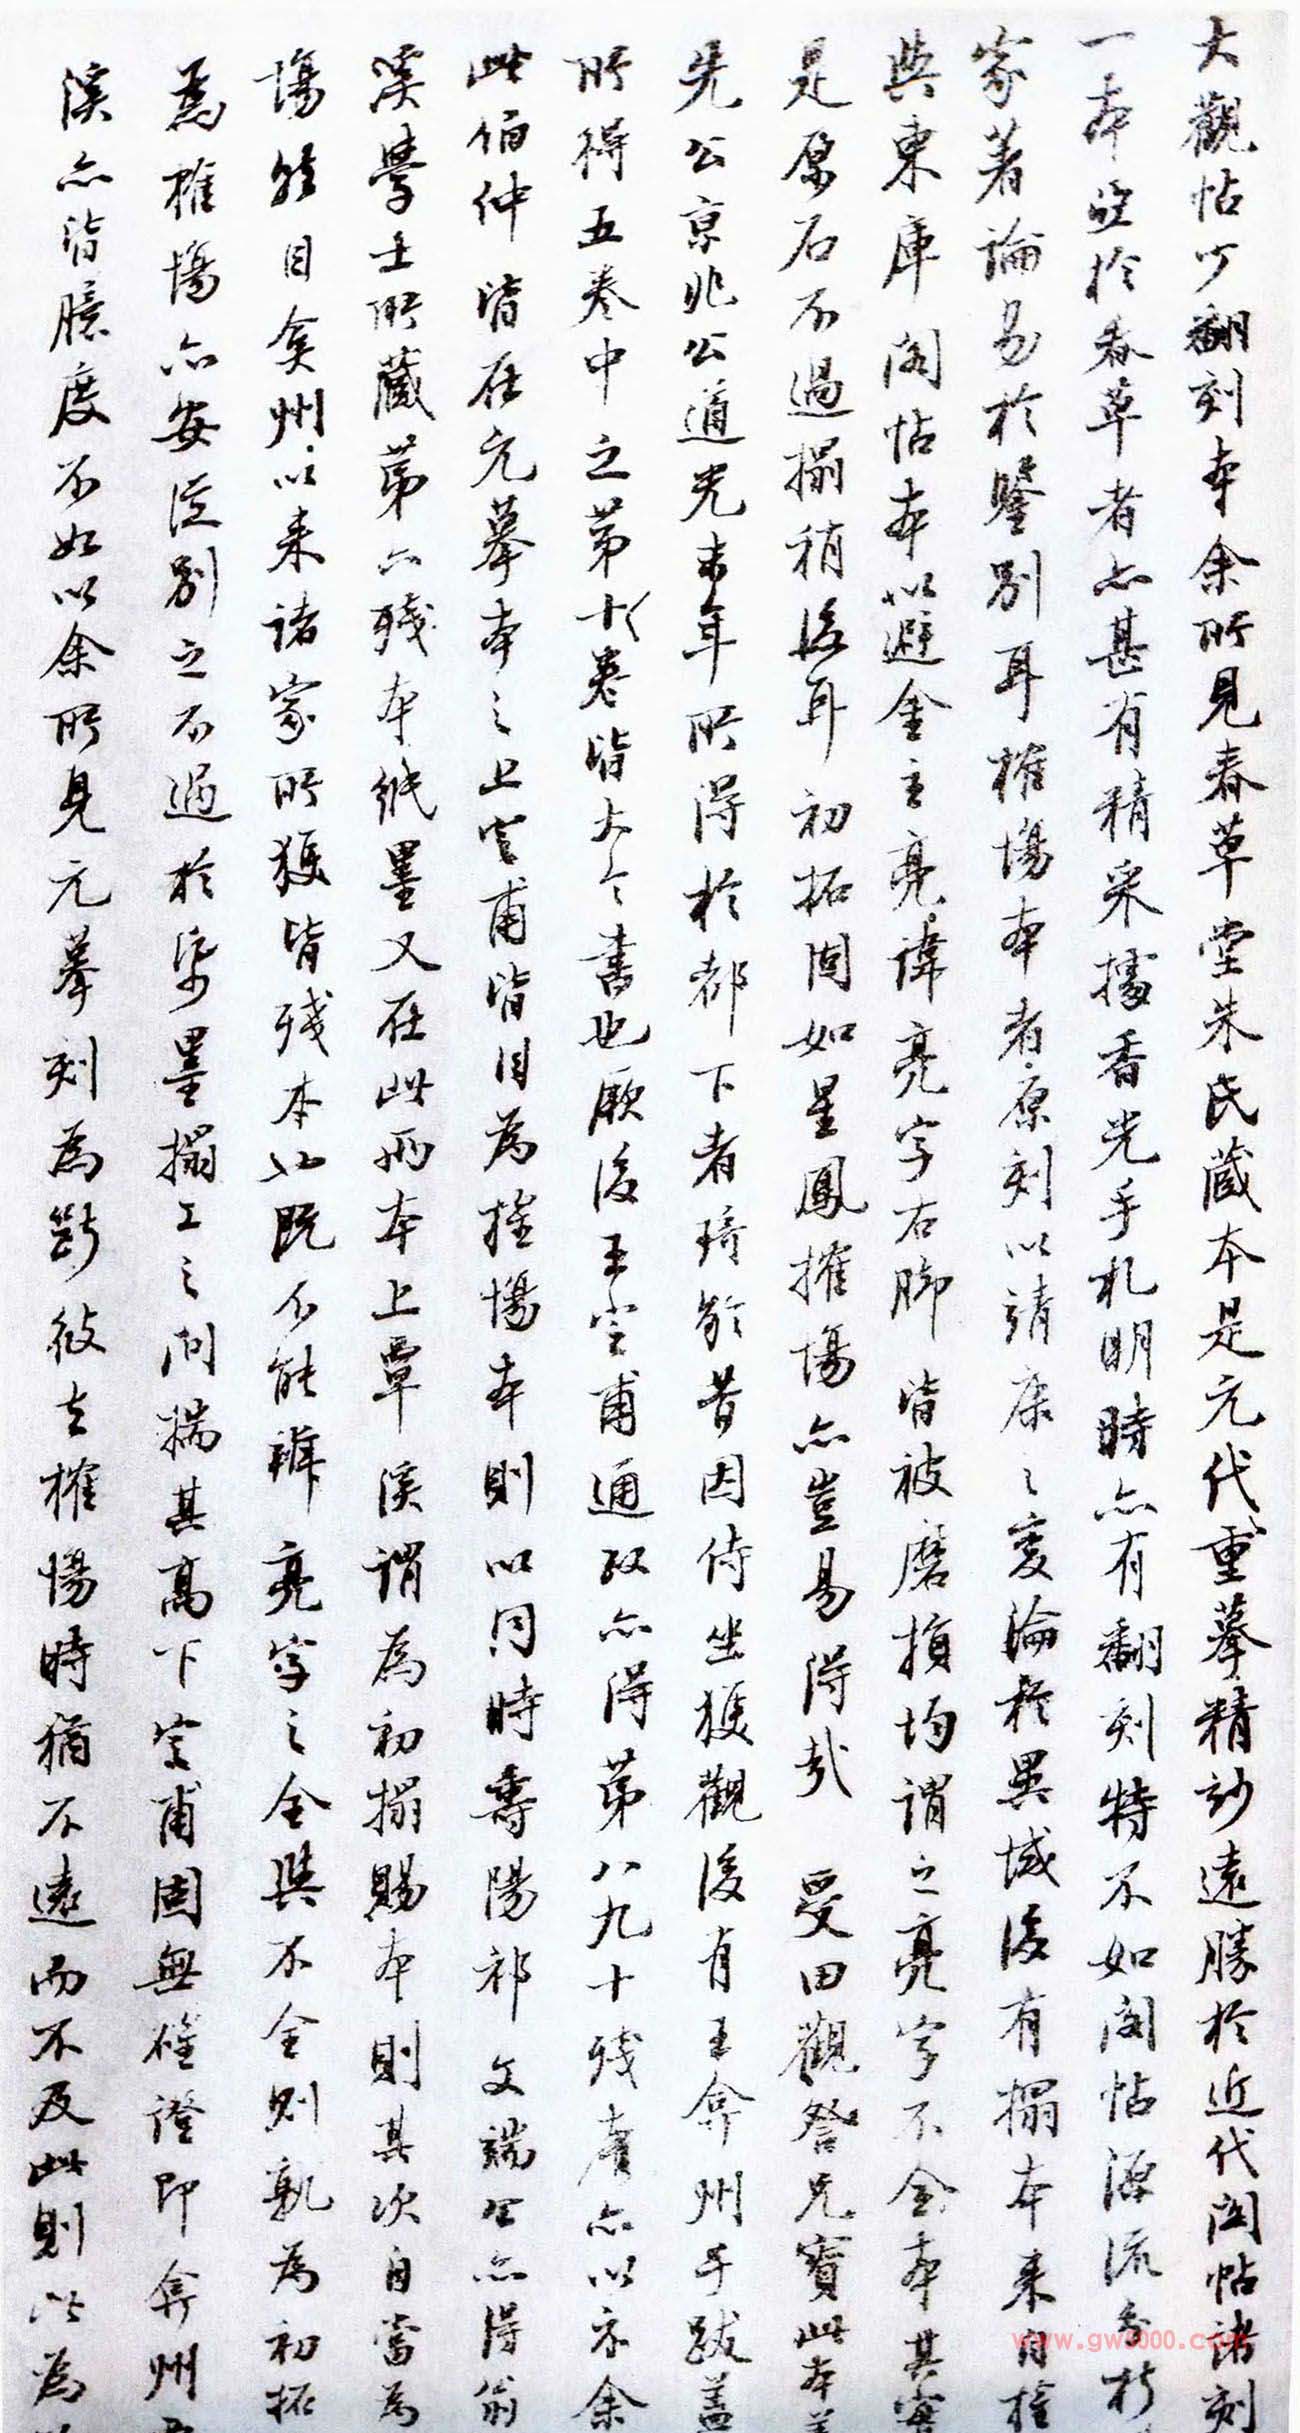 大觀帖少翻刻本余所見春草堂朱氏藏本是元代重摹精妙遠勝於近代閣帖諸刻
一本臨於春草者亦甚有精采據香光手札明時亦有翻刻特不如閣帖源流多
家著論易於鑒別耳榷場本者原刻以靖康之變淪於異域後有搨本來自榷
與東庫閣帖本以避金主亮諱亮字右脚皆被磨損均謂之亮字不全本其實
是原石不過搨稍後耳初拓固如星鳳榷場亦豈易得哉 受田觀詧兄寶此本
先公京兆公道光末年所得於都下者琦齡昔因侍坐獲觀後有王弇州手跋蓋
所得五卷中之第十卷皆大令書也厥後王定甫通政亦得第八九十殘卷亦以示余
此伯仲皆在元摹本之上定甫皆目為榷場本則以同時壽陽祁文端公亦得翁
溪學士所藏第六殘本紙墨又在此兩本上覃溪謂為初搨賜本則其次自當為
場然自弇州以來諸家所獲皆殘本此既不能辨亮字之全與不全則孰為初拓
為榷場亦安從別之不過於紙墨搨工之間揣其高下定甫固無確證即弇州
溪亦皆臆度不如以余所見元摹刻為斷彼去榷場時猶不遠而不及此則以為
www.gw5000.com